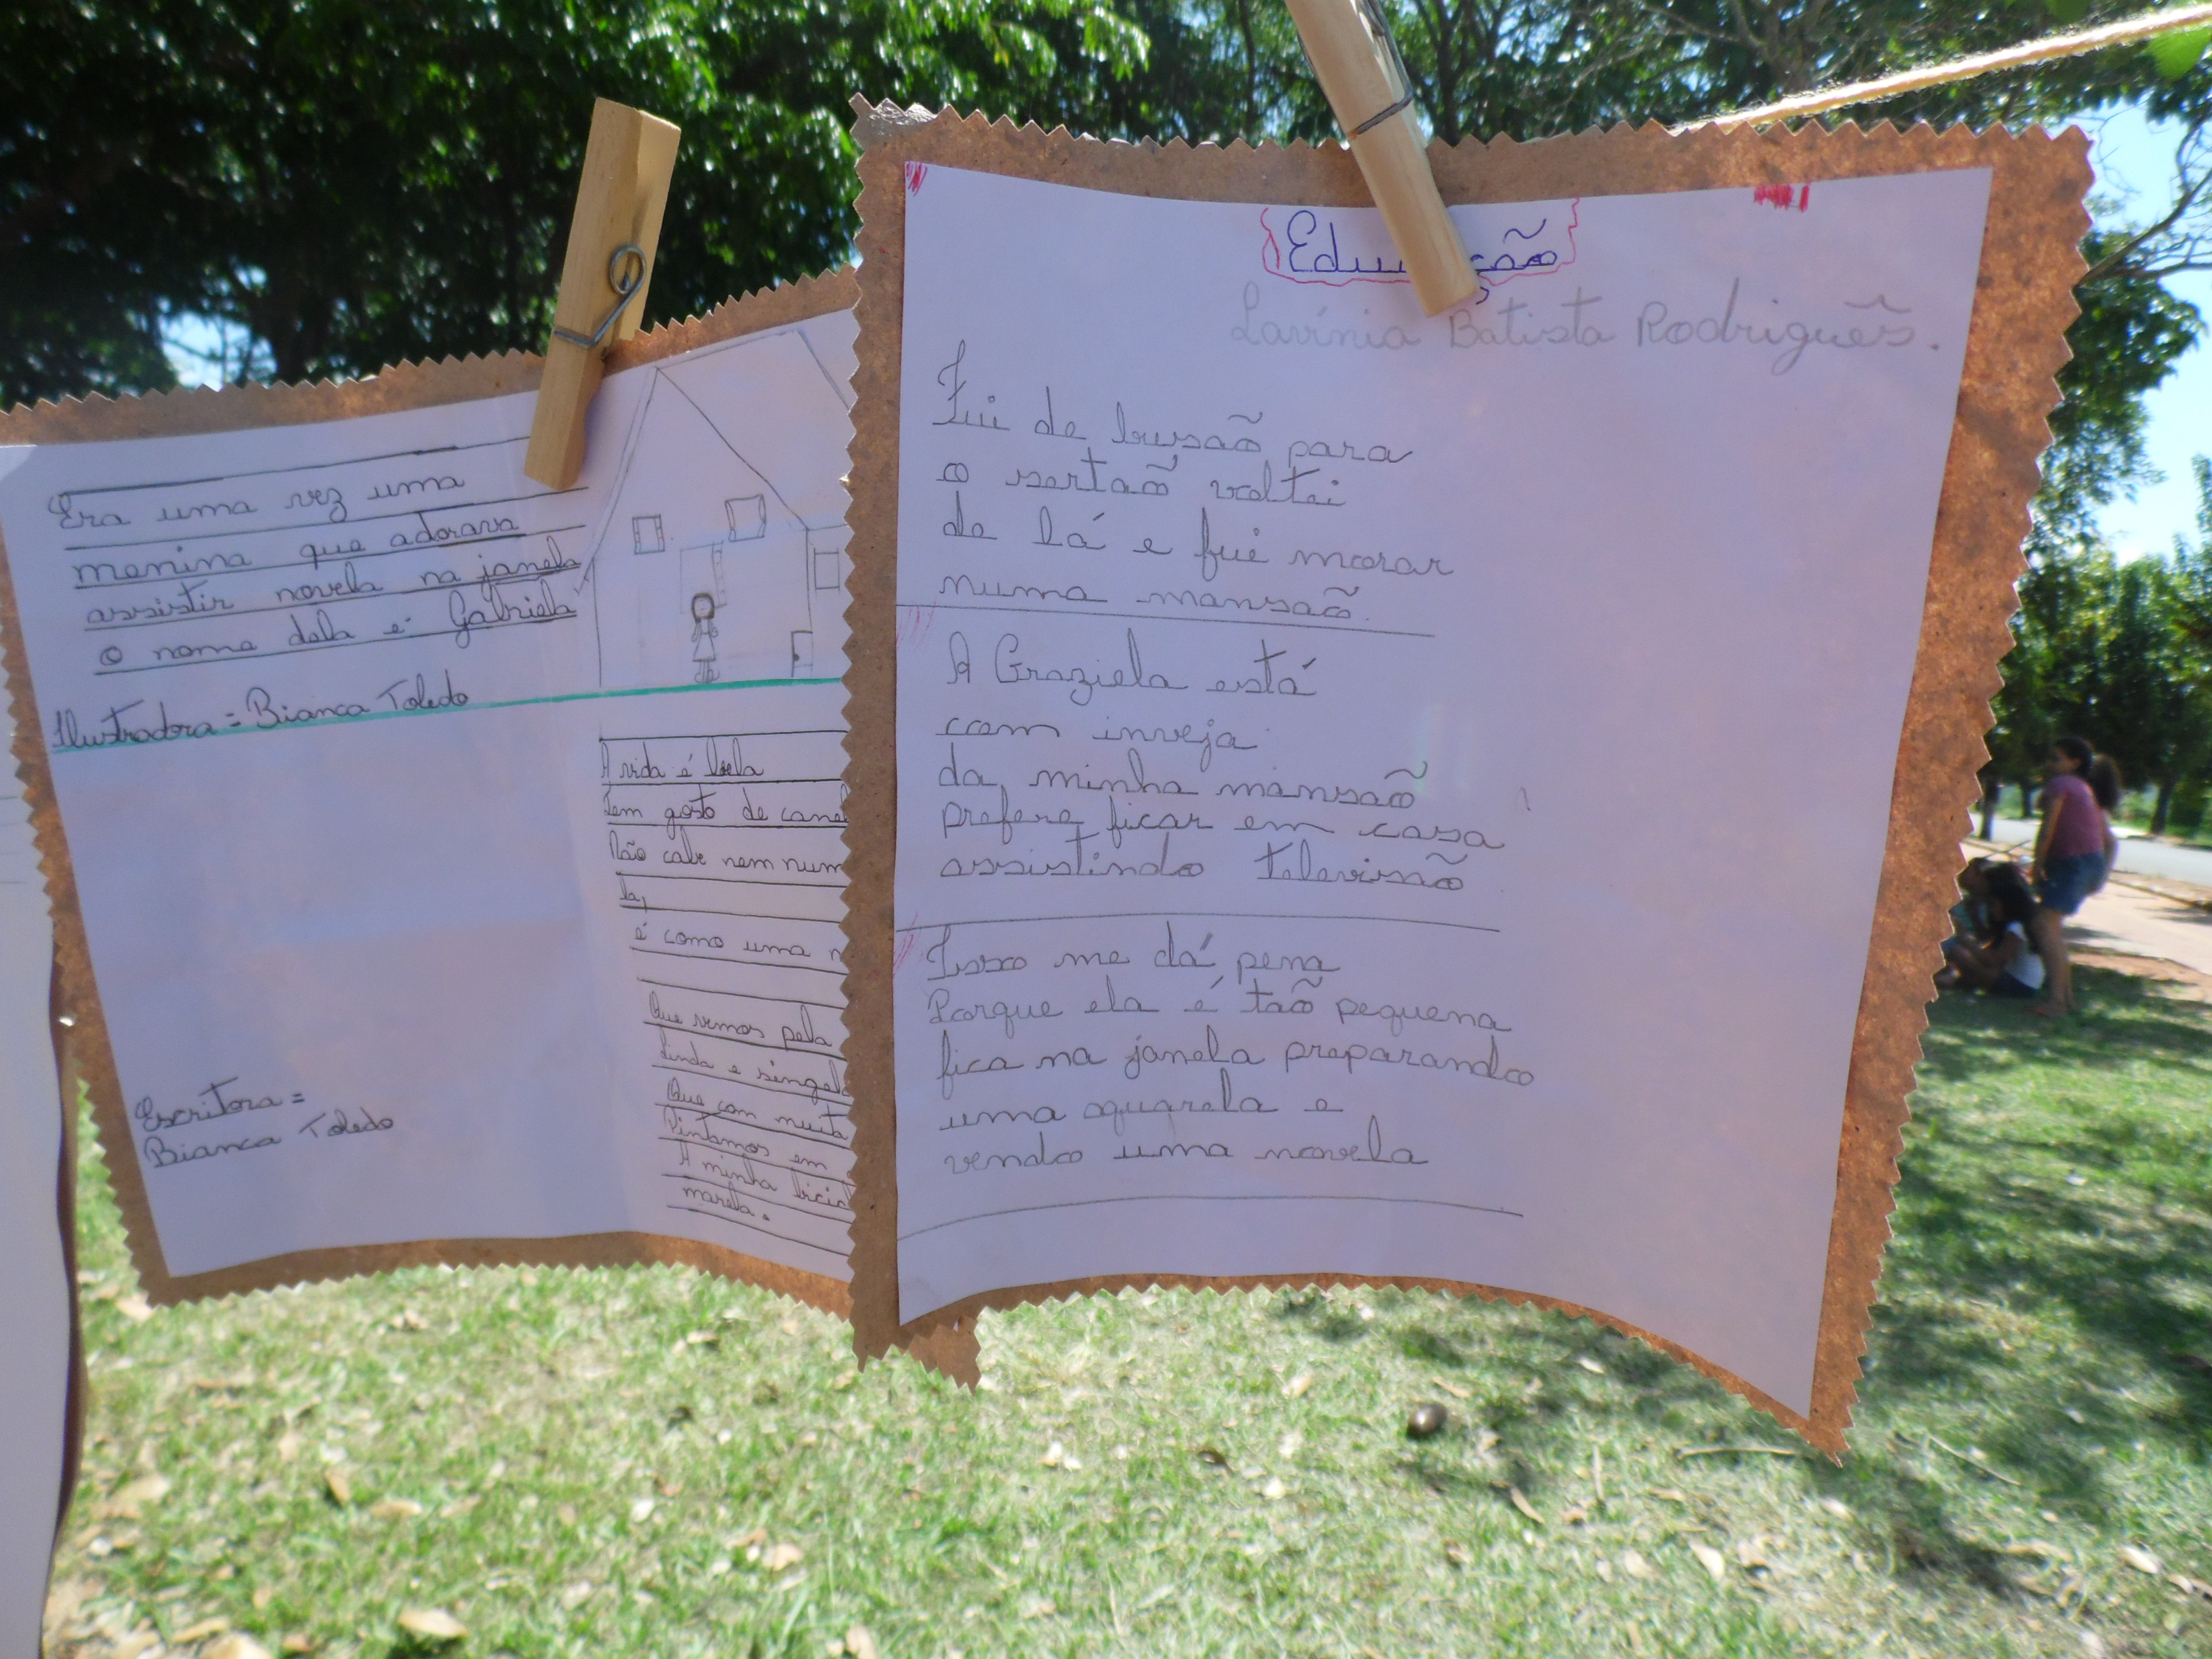 Era uma vez uma
menina que adorava
assistir novela na janela
o nome dela é Gabriela
Ilustradora = Bianca Toledo
A vida é bela
Tem gosto de canel
Não cabe nem num
la,
é como uma n
Que vemos pela
linda e singela
Que com muita
Pintamos em
A minha bicicl
marela.
Escritora =
Bianca Toledo
Edu ção
Lavínia Batista Rodriguês.
Fui de busão para
o sertão voltei
de lá e fui morar
numa mansão.
A Graziela está
com inveja
da minha mansão
prefere ficar em casa
assistindo televisão
Isso me dá pena
Porque ela é tão pequena
fica na janela preparando
uma aquarela e
vendo uma novela